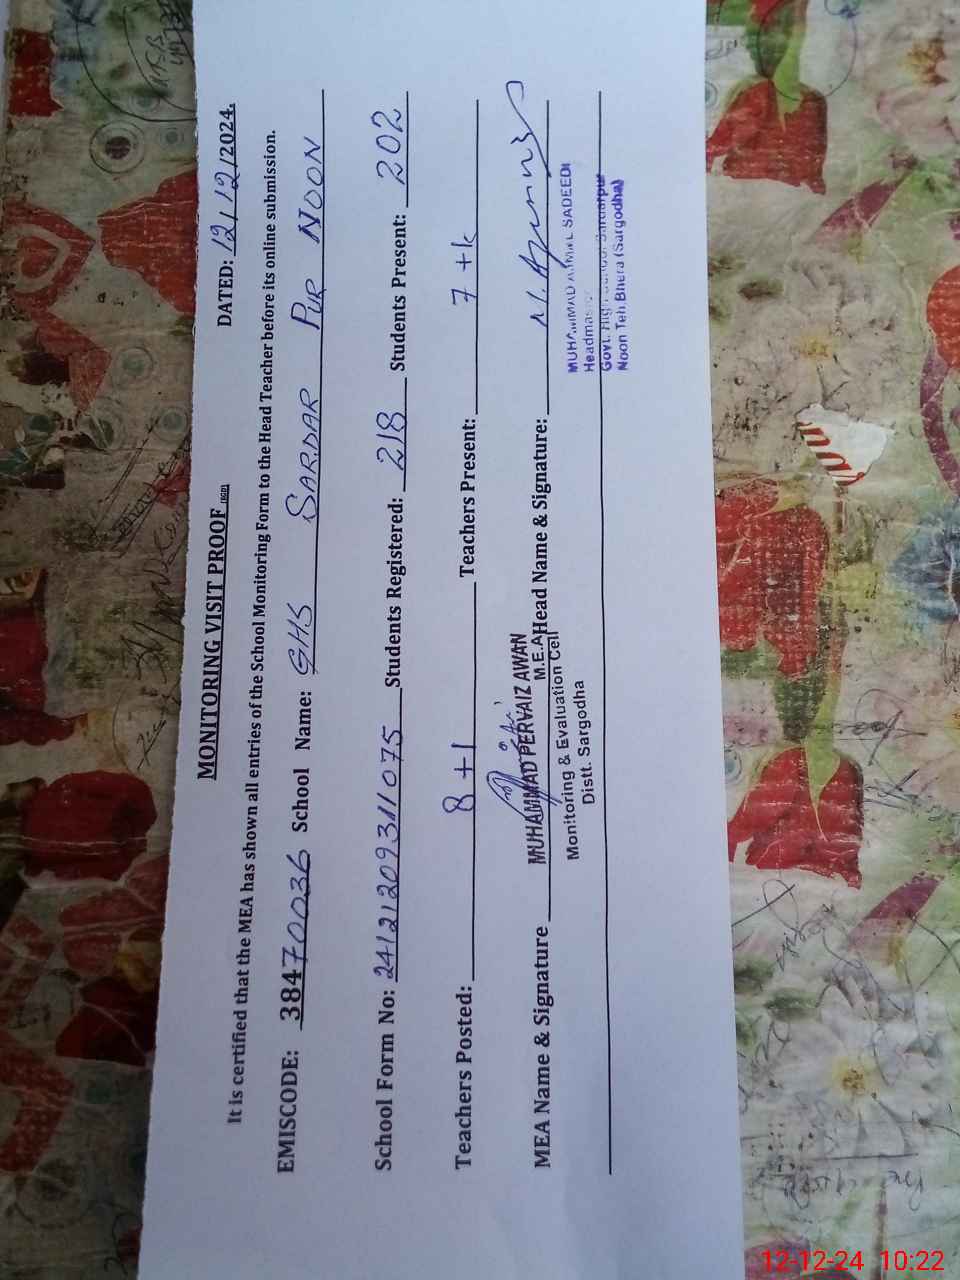 MONITORING VISIT PROOF
DATED: 12/12/2024.
It is certified that the MEA has shown all entries of the School Monitoring Form to the Head Teacher before its online submission.
EMISCODE: 38470036 School Name: GHS SARDAR PUR NOON
School Form No: 2412120931075 Students Registered: 218 Students Present: 202
Teachers Posted: 8+1 Teachers Present: 7+
MEA Name & Signature Head Name & Signature:
MUHAMMAD PERVAIZ AWAN
M.E.A
Monitoring & Evaluation Cell
Distt. Sargodha
MUHAMMAD AJMAL SADEEDI
Headmaster
Govt. High School Sardarpur
Noon Teh.Bhera (Sargodha)
12-12-24 10:22